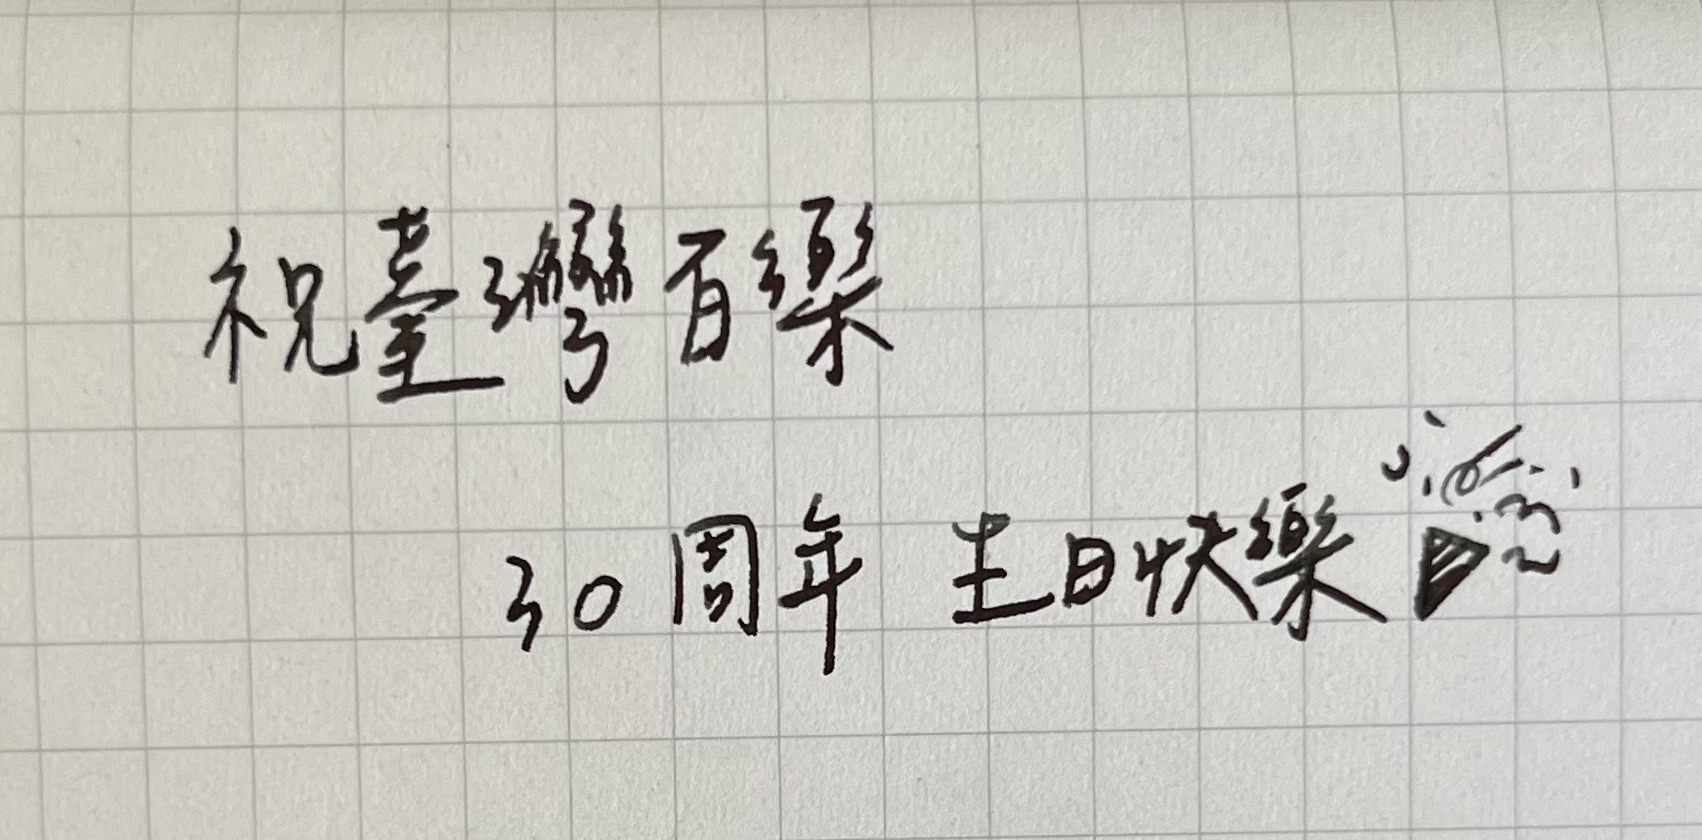 祝臺灣百樂
30周年 生日快樂